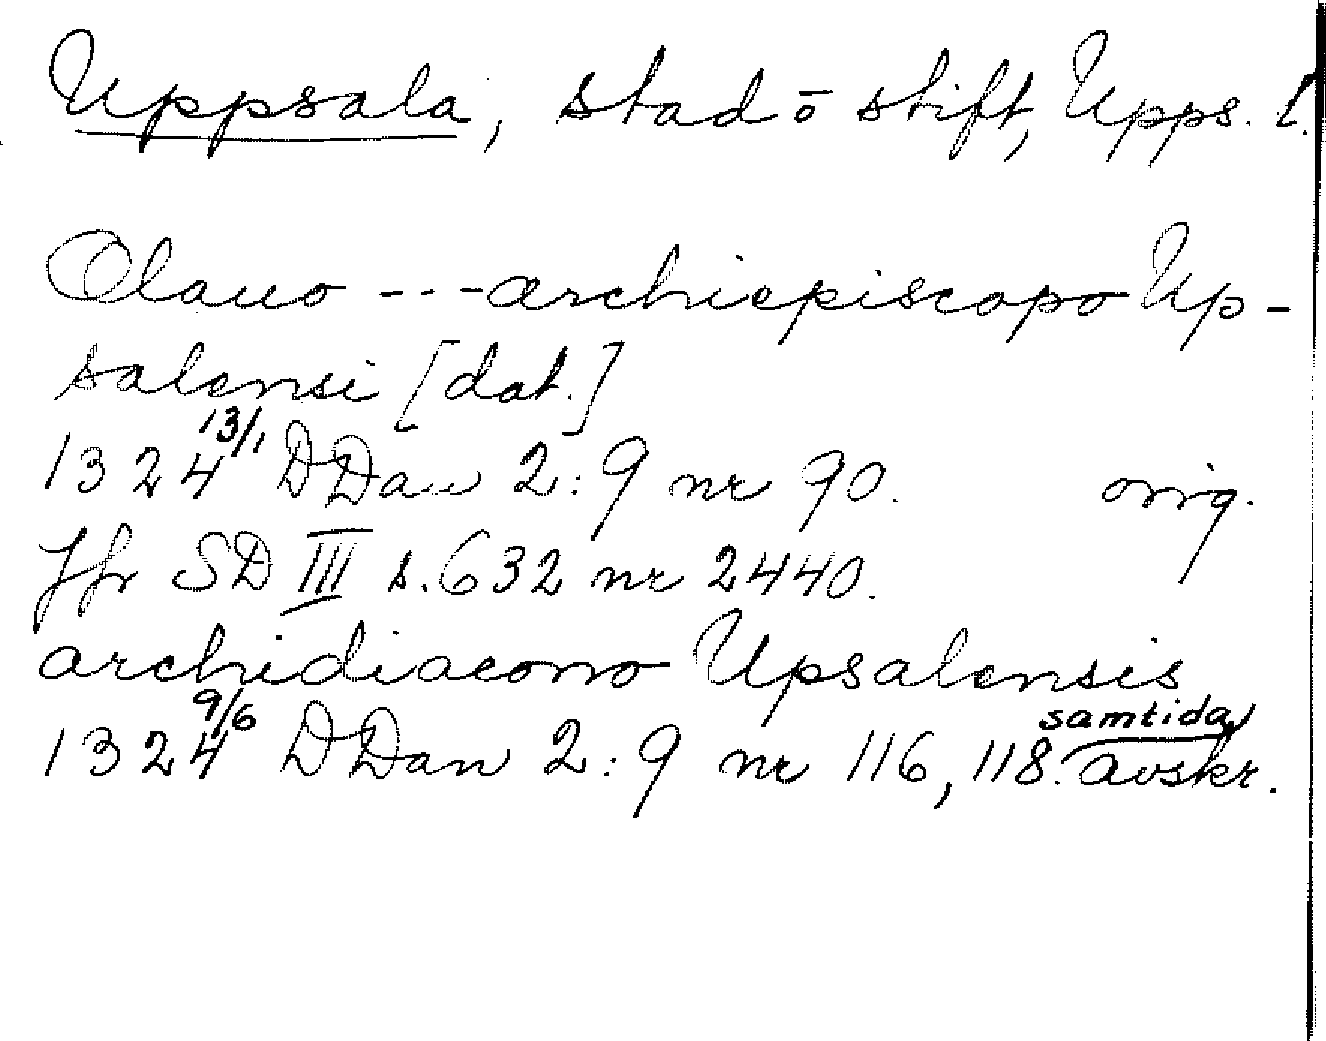 Uppsala, stad o stift, Upps. l.
Olauo --- archiepiscopo Up-
salensi [dat.]
1324 13/1 DDan 2:9 nr 90. orig.
Jfr SD III s. 632 nr 2440.
archidiacono Upsalensis
1324 9/6 DDan 2:9 nr 116, 118. samtida avskr.